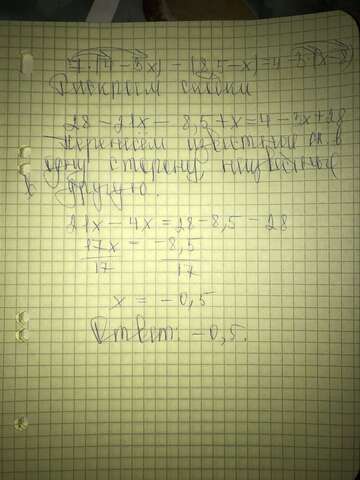 7·(4-3x) - (8,5-x)=4-3·(x-8)
Раскроем скобки
28-21x-8,5+x=4-3x+28
Перенесем известные в
одну сторону, неизвестные
в другую.
21x-4x=28-8,5-28
17x = -8,5
17 17
x = -0,5
Ответ: -0,5.